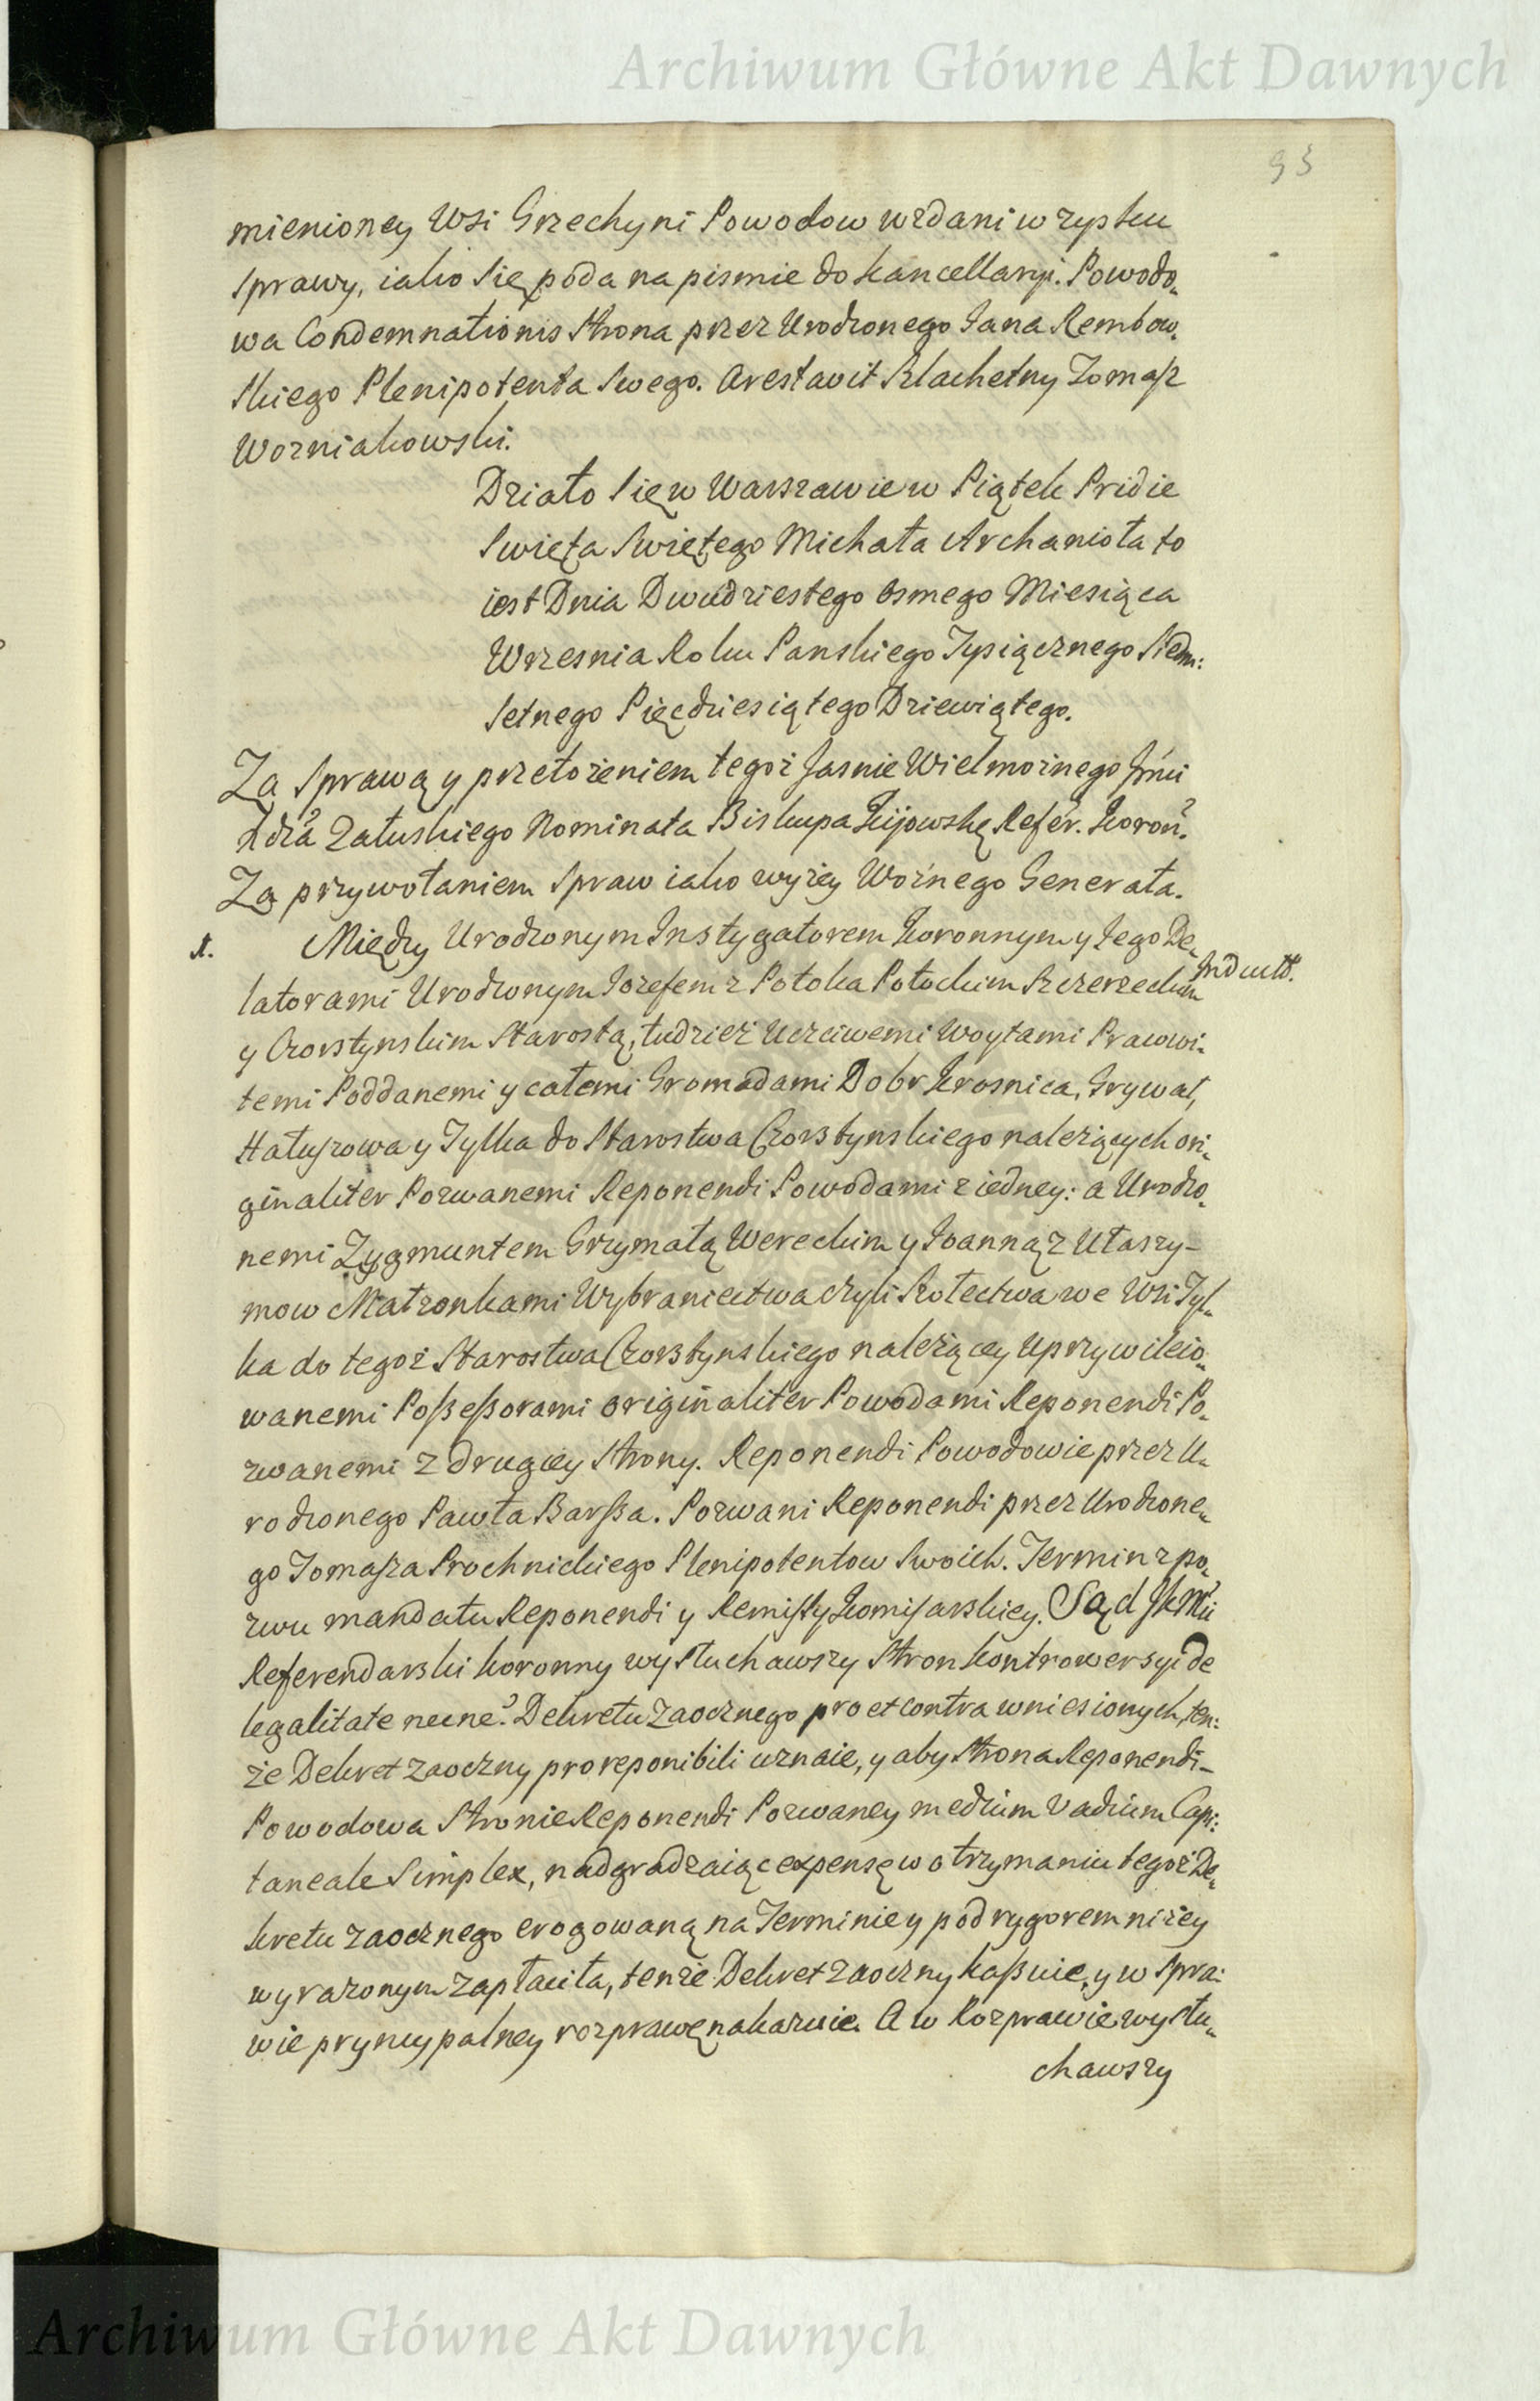 Archiwum Główne Akt Dawnych
93
mienioney Wsi Grzechyni Powodow wzdani w zysku
sprawy, iako się poda na pismie do kancellaryi. Powodo„
wa Condemnationis Strona przez Urodzonego Jana Rembow„
skiego Plenipotenta Swego. Arestavit Szlachetny Tomasz
Wozniakowski.
Działo się w Warszawie w Piątek Pridie
Swięta Swiętego Michała Archanioła to
iest Dnia Dwudziestego osmego Miesiąca
Wrzesnia Roku Panskiego Tysiącznego Siedm:
setnego Pięcdziesiątego Dziewiątego.
Za sprawą y przełożeniem tegoż Jasnie Wielmożnego Jmci
Xdza Załuskiego Nominata Biskupa Kijowskę Refer. Koron.
Za przywołaniem spraw iako wyżey Woźnego Generała.
1. Między Urodzonym Instygatorem Koronnym y Jego De„
Indult.
latorami Urodzonym Jozefem z Potoka Potockim Szczerzeckim
y Czorstynskim Starostą, tudzież Uczciwemi Woytami Prawowi„
temi Poddanemi y całemi Gromadami Dobr Krosnica, Grywał,
Hałuszowa y Tylka do Starostwa Czorsztynskiego należących ori„
ginaliter Pozwanemi Reponendi Powodami z iedney: a Urodzo„
nemi Zygmuntem Grzymałą Wereckim y Joanną z Utaszy-
mow Małżonkami Wybraniectwa czyli Szołectwa we Wsi Tyl„
ka do tegoż Starostwa Czorsztynskiego należącey uprzywileio„
wanemi Possessorami originaliter Powodami Reponendi Po„
zwanemi z drugiey Strony. Reponendi Powodowie przez U„
rodzonego Pawła Barssa. Pozwani Reponendi przez Urodzone„
go Tomasza Prochnickiego Plenipotentow Swoich. Termin z po„
zwu mandatu Reponendi y Remissy Komisarskiey. Sąd JKMci
Referendarski koronny wysłuchawszy Stron kontrowersyi de
legalitate necne? Dekretu Zaocznego pro et contra wniesionych, ten:
że Dekret zaoczny pro reponibili uznaie, y aby Strona Reponendi-
Powodowa Stronie Reponendi Pozwaney medium Vadium Capi:
taneale Simplex, nadgradzaiąc expensę w otrzymaniu tegoż De„
kretu zaocznego erogowaną na Terminie y pod rygorem niżey
wyrażonym zapłaciła, tenże Dekret zaoczny kassuie, y w spra:
wie pryncypalney rozprawę nakazuie. A w Rozprawie wysłu„
chawszy
Archiwum Główne Akt Dawnych